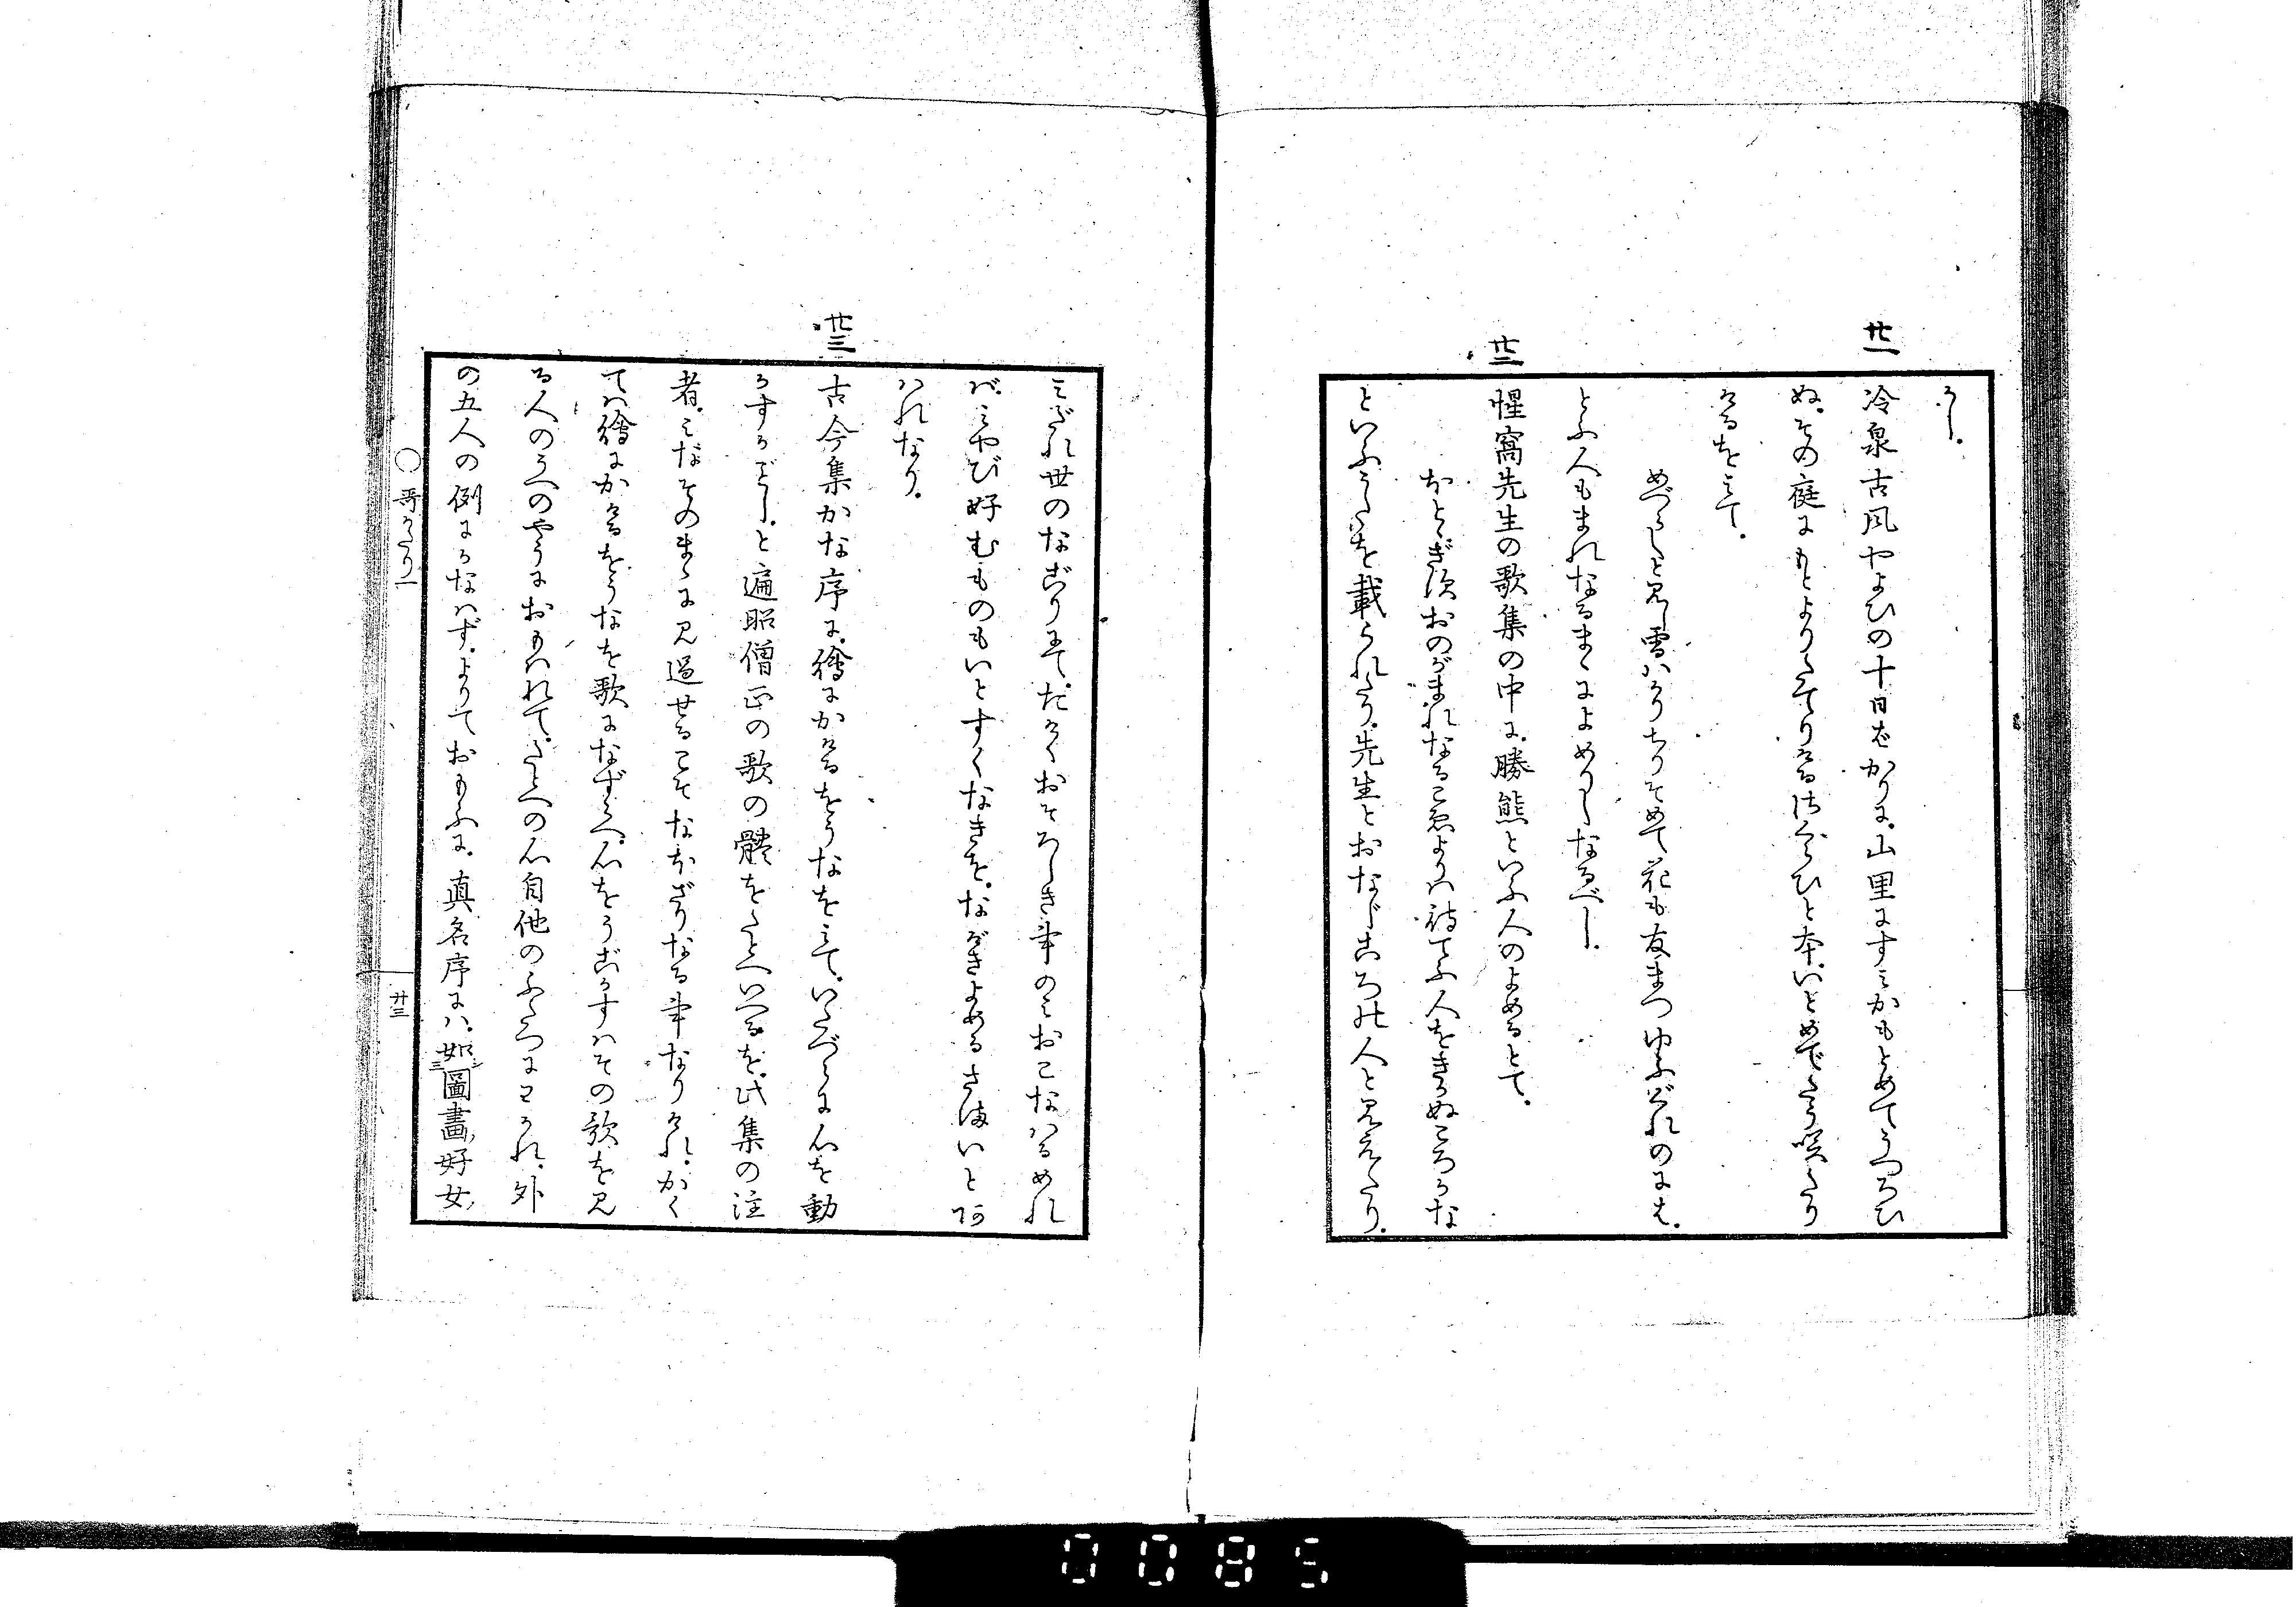 らし。
廿一
冷泉古風やよひの十日ばかりに。山里にすみかもとめてうつろひ
ぬ。その庭にもとよりたてりける さくらひと本。いとめでたう咲たり
けるを見て。
めづらしと見し雪はかつちりそめて花も友まつゆふぐれのには。
とふ人もまれなるまゝによめりしなるべし。
廿二
惺窩先生の歌集の中に。勝熊といふ人のよめるとて。
ほとゝぎすおのがまれなるこゑよりは待てふ人をきかぬころかな
といふうたを載られたり。先生とおなじころの人と見えたり。
みだれ世のなごりにて。たけくおそろしき事のみおこなはるめれ
ば。みやび好むものもいとすくなきを。なげきよめるさまいとあ
はれなり。
廿三
古今集かな序に。繪にかけるをうなを見て。いたづらに心を動
かすがごとし。と遍昭僧正の歌の體をたとへいへるを。此集の注
者。みなそのまゝに見過せるこそなほざりなる事なりけれ。かく
ては繪にかけるをうなを歌になずらへ。心をうごかすはその歌を見
る人のうへのやうにおもはれて。たとへの心自他のふたつにわかれ。外
の五人の例にかなはず。よりておもふに。真名序には。如三圖畫好女
〇哥かたり一
廿三
0085